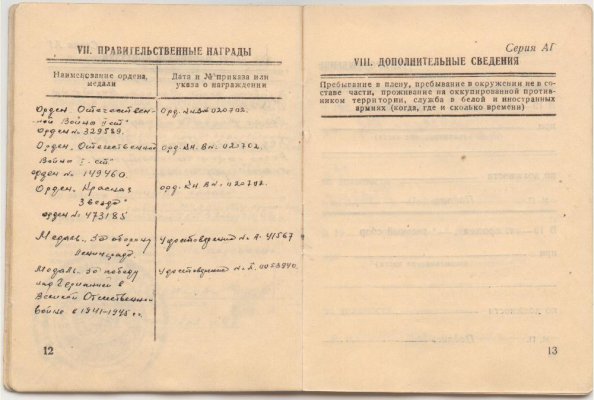 VII. ПРАВИТЕЛЬСТВЕННЫЕ НАГРАДЫ
Наименование ордена, медали
Дата и № приказа или указа о награждении
Орден Отечествен-
ной Война I ст"
Орден № 329589.
Орд.Кн.В№ 020702.
Орден. Отечественной
Война I-ст"
орден № 149460.
орд. Кн. В№: 020702.
Орден. Красная
Звезда"
орден № 473185
орд. Кн. В№: 020702.
Медаль. За оборону
Ленинграда.
Удостоверение № А. 41567
Медаль. За победу
над Германией в
Великой Отечественной
войне в 1941-1945 гг.
Удостоверение №
12
Серия АГ
VIII. ДОПОЛНИТЕЛЬНЫЕ СВЕДЕНИЯ
Пребывание в плену, пребывание в окружении не в со-
ставе части, проживание на оккупированной против-
ником территории, служба в белой и иностранных
армиях (когда, где и сколько времени)
13